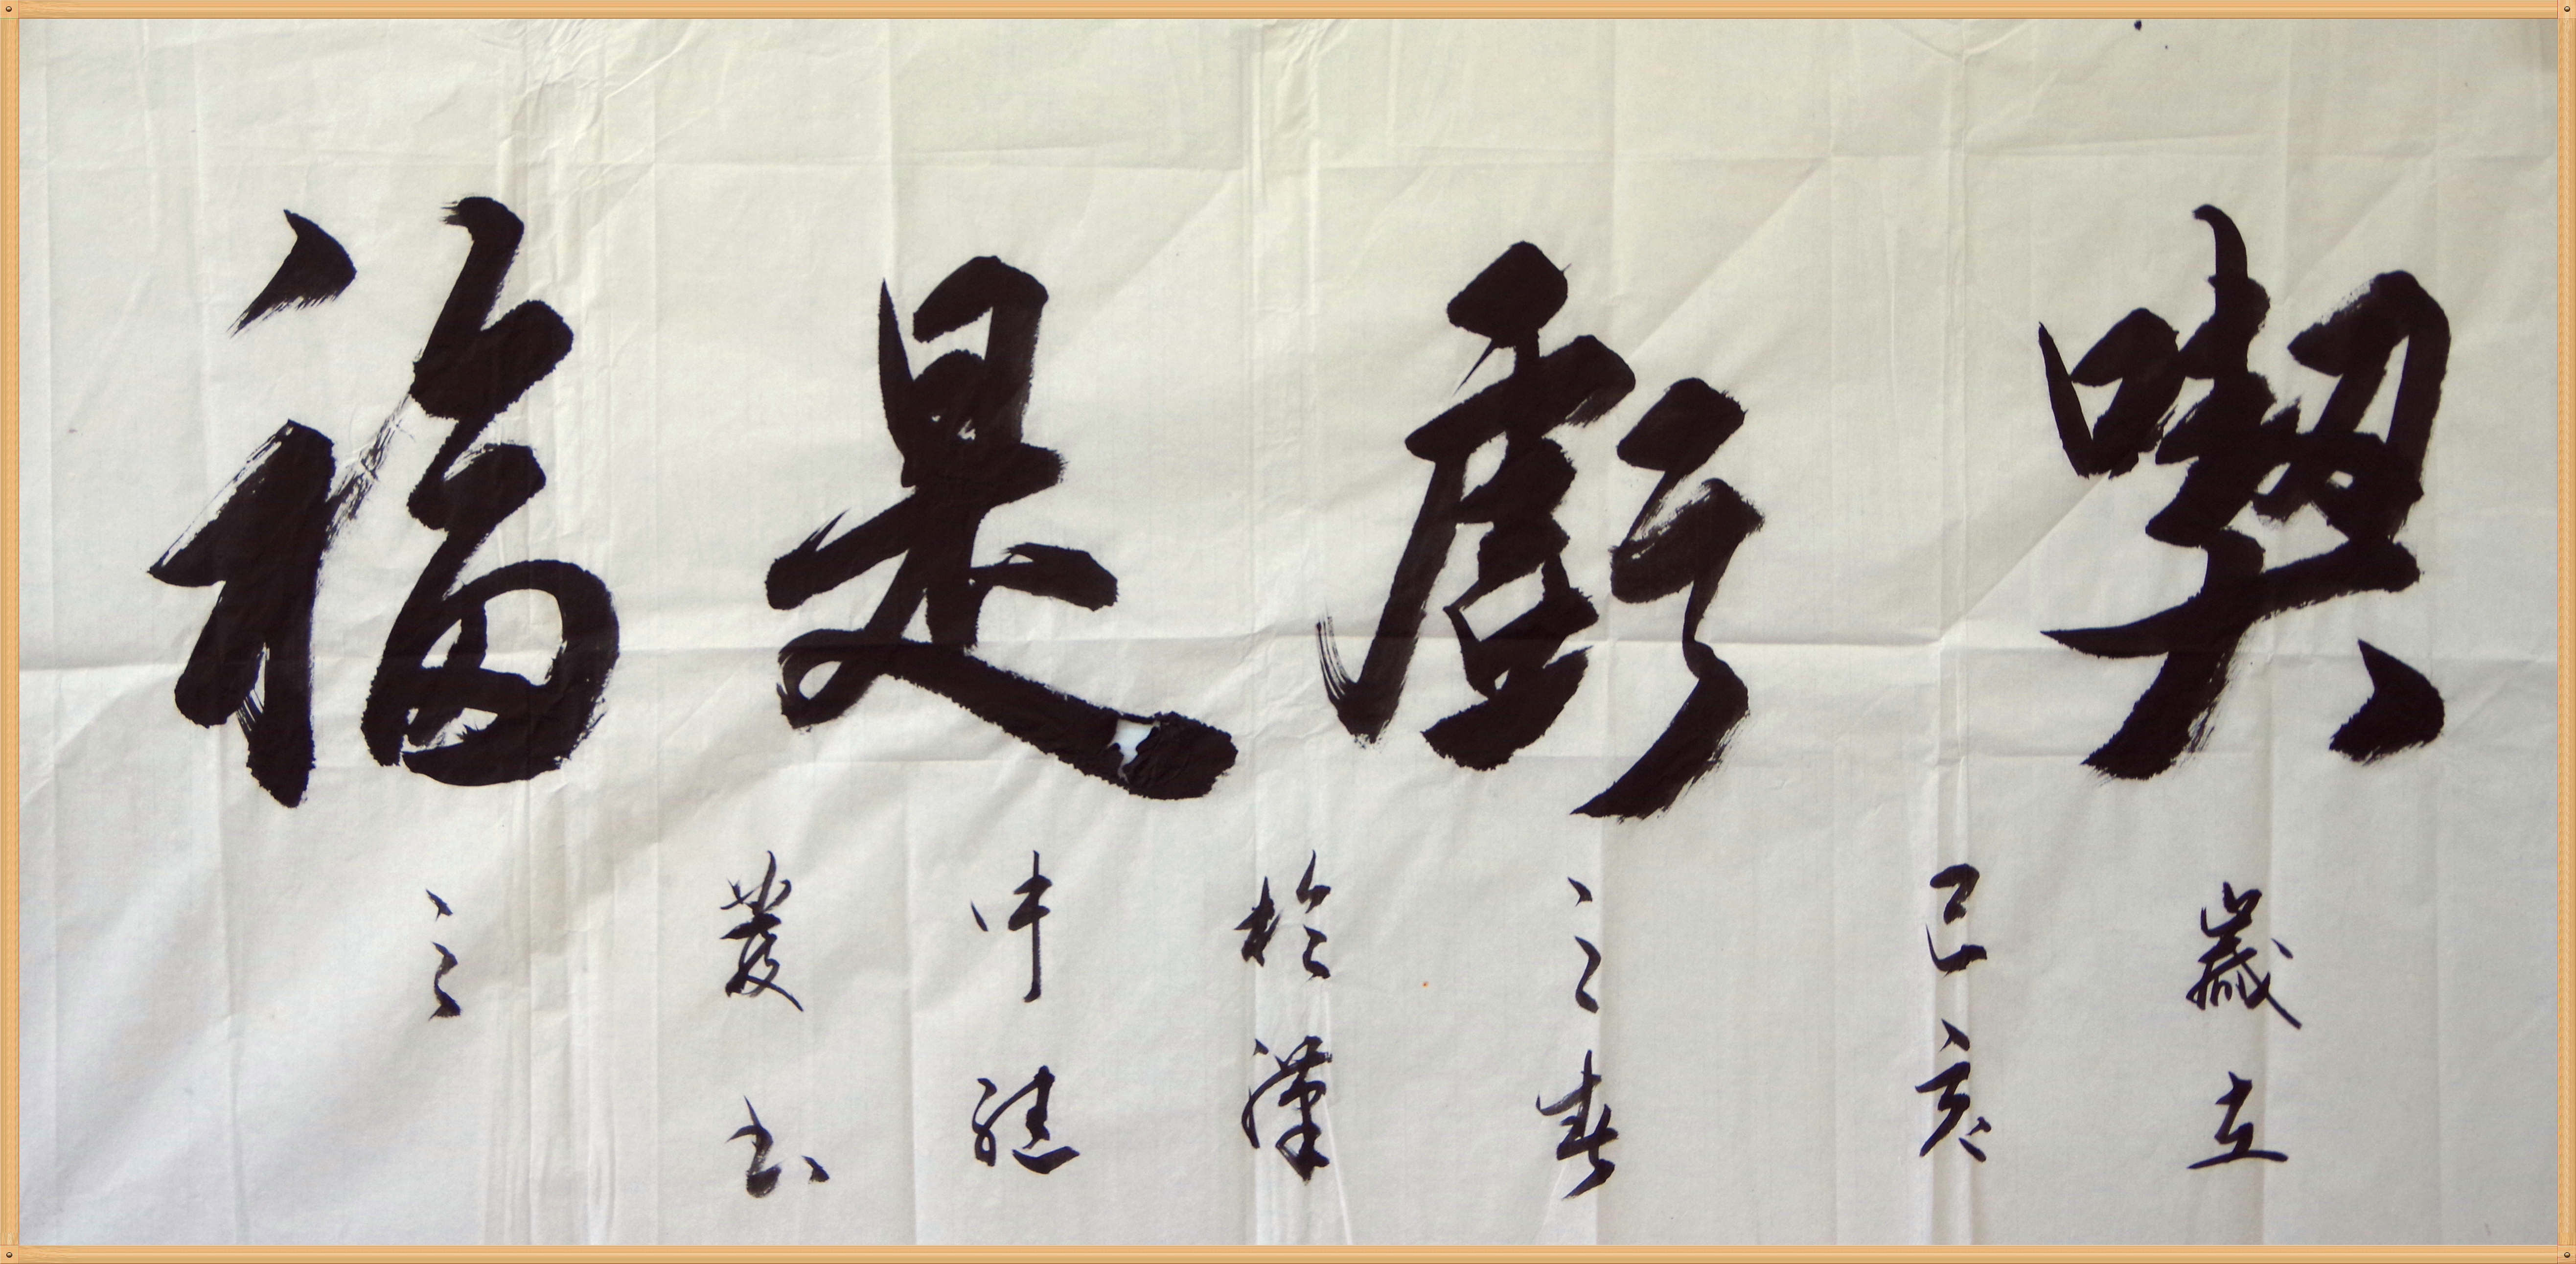 喫虧是福
歲在
己亥
之春
於漢
中
書
之